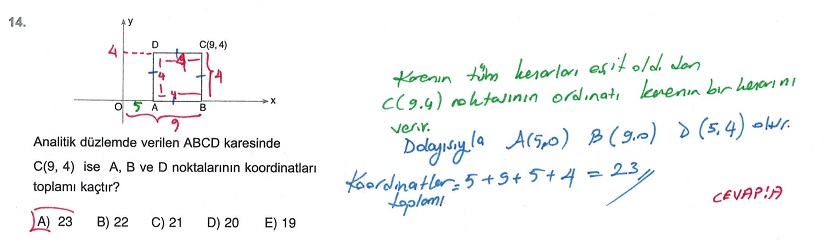 14.
y
D
C(9, 4)
4
4
4
4
4
O
5
A
B
x
9
Analitik düzlemde verilen ABCD karesinde
C(9, 4) ise A, B ve D noktalarının koordinatları
toplamı kaçtır?
A) 23 B) 22 C) 21 D) 20 E) 19
Karenin tüm kenarları eşit old.dan
C(9.4) noktasının ordinatı karenin bir kenarını
verir.
Dolayısıyla A(5,0) B(9,0) D(5,4) olur.
Koordinatlar = 5+9+5+4 = 23
toplamı
CEVAP:A